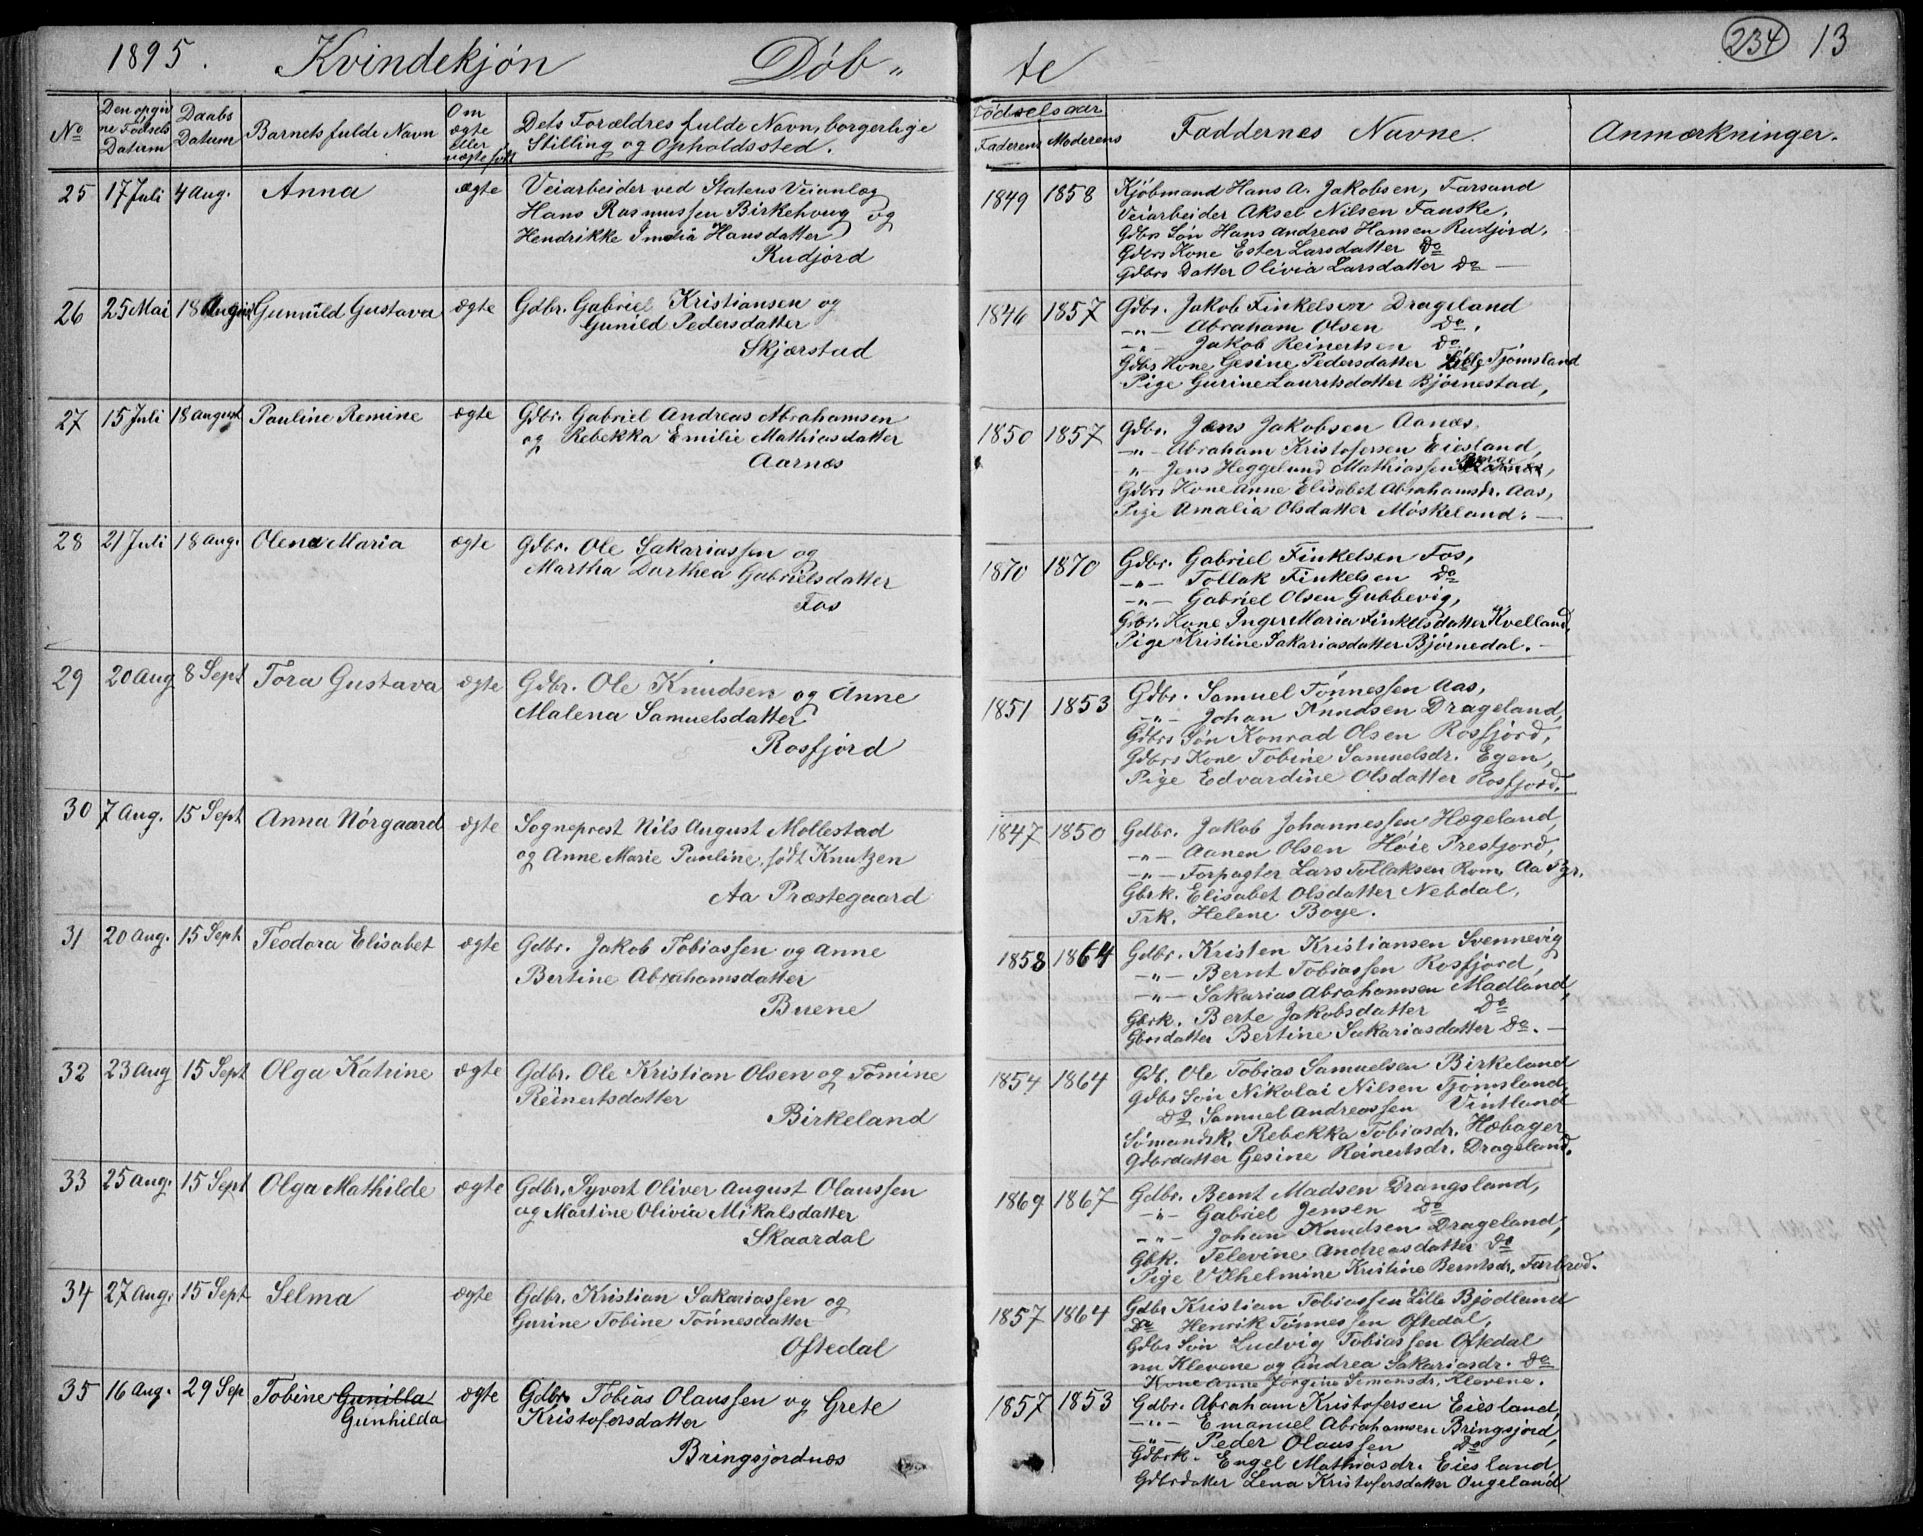 1895. Kvindekjøn Døb„
№ Den opgivne Fødsels Datum Daabs Datum Barnets fulde Navn Om ægte eller uægte født Dets Forældres fulde Navn, borgerlige Stilling og Opholdssted.
25 17 Juli 4 Aug. Anna ægte Veiarbeider ved Statens Veianlæg
Hans Rasmussen Birkehoug og
Hendrikke Hansdatter
Rudjord
26 25 Mai 18 August Gunuld Gustava ægte Gdbr. Gabriel Kristiansen og
Gunild Pedersdatter
Skjærstad
27 15 Juli 18 august Pauline Remine ægte Gdbr. Gabriel Andreas Abrahamsen
og Rebekka Emilie Mathiasdatter
Aarnes
28 21 Juli 18 aug. Olena Maria ægte Gdbr. Ole Sakariassen og
Martha Dorthea Gabrielsdatter
Fos
29 20 Aug 8 Sept Tora Gustava ægte Gdbr. Ole Knudsen og Anne
Malena Samuelsdatter
Rosfjord
30 7 Aug. 15 Sept Anna Nørgaard ægte Sogneprest Nils August Mollestad
og Anne Marie Pauline, født Knutzen
Aa Præstegaard
31 20 aug. 15 Sept. Teodora Elisabet ægte Gdbr. Jakob Tobiassen og Anne
Bertine Abrahamsdatter
Buene
32 23 Aug 15 Sept Olga Katrine ægte Gdbr. Ole Kristian Olsen og Tomine
Reinertsdatter
Birkeland
33 25 aug. 15 Sept Olga Mathilde ægte Gdbr. Syvert Oliver August Olaussen
og Martine Olivia Mikalsdatter
Skaardal
34 27 Aug. 15 Sept Selma ægte Gdbr. Kristian Sakariassen og
Gurine Tobine Tønnesdatter
Oftedal
35 16 Aug. 29 Sep Tobine Gunilla ægte Gdbr. Tobias Olaussen og Grete
Gunhilda Kristofersdatter
Bringsjordnæs
te 234 13
Fødselsaar
Faderens Moderens Faddernes Navne. Anmærkninger.
1849 1858 Kjøbmand Hans A. Jakobsen, Farsund
Veiarbeider Aksel Nilsen Fauske,
Gdbrs Søn Hans Andreas Hansen Rudjord,
Gdbrs Kone Ester Larsdatter Do
Gdbrs Datter Olivia Larsdatter Do —
1846 1857 Gdbr. Jakob Finkelsen Drageland
—„— Abraham Olsen Do,
—„— Jakob Reinertsen Do,
Gdbs Kone Gesine Pedersdatter Lille Tjomsland
Pige Gurine Lauritsdatter Bjørnestad,
1850 1857 Gdbr. Jens Jakobsen Aanæs,
—„— Abraham Kristofersen Eiesland,
—„ Jens Heggelund Mathiassen
Gdbrs Kone Anne Elisabet Abrahamsdr. Aas,
Pige Amalia Olsdatter Møskeland. —
1870 1870 Gdbr. Gabriel Finkelsen Fos,
—„— Tollak Finkelsen Do
—„— Gabriel Olsen Gubbevig,
Gbr. Kone Inger Maria Finkelsdatter Kvelland,
Pige Kristine Sakariasdatter Bjørnedal. —
1851 1853 Gdbr. Samuel Tønnessen Aas,
—„— Johan Knudsen Drageland,
Gdbrs Søn Konrad Olsen Rosfjord,
Gdbrs Kone Tobine Samuelsdr. Egen,
Pige Edvardine Olsdatter Rosfjord.
1847 1850 Gdbr. Jakob Johannessen Hægeland,
—„— Aanen Olsen Høie Prestjord,
—„— Forpagter Lars Tollaksen Rom, Aa Pgr.
Gbrk. Elisabet Olsdatter Nebdal,
Frk. Helene Boye.
1858 1864 Gdbr. Kristen Kristiansen Svennevig
—„— Bernt Tobiassen Rosfjord,
—„— Sakarias Abrahamsen Madland,
Gbrk. Berte Jakobsdatter Do
Gbrsdatter Bertine Sakariasdatter Do. —
1854 1864 Gdb. Ole Tobias Samuelsen Birkeland
Gdbs Søn Nikolai Nilsen Tjomsland,
Do Samuel Andreassen Vintland
Sømandsk. Rebekka Tobiasdr. Hæbager
Gdbrdatter Gesine Reinertsdr. Drageland.
1869 1867 Gdbr. Bernt Madsen Drangsland,
—„— Gabriel Jensen Do
—„— Johan Knudsen Drageland,
Gbk. Televine Andreasdatter Do
Pige Vilhelmine Kristine Berntsdr. Farbrod.
1857 1864 Gdbr Kristian Tobiassen Lille Bjødland
Do Henrik Tønnessen Oftedal,
Gdbs Søn Ludvig Tobiassen Oftedal
nu Klevene og Andrea Sakariasdr. Do
Kone Anne Jørgine Simonsdr. Klevene.
1857 1853 Gdbr. Abraham Kristofersen Eiesland,
—„— Emanuel Abrahamsen Bringsjord,
—„— Peder Olaussen Do
Gdbrk. Engel Mathiasdr. Eiesland
Gdbrdatter Lena Kristofersdatter Ougeland